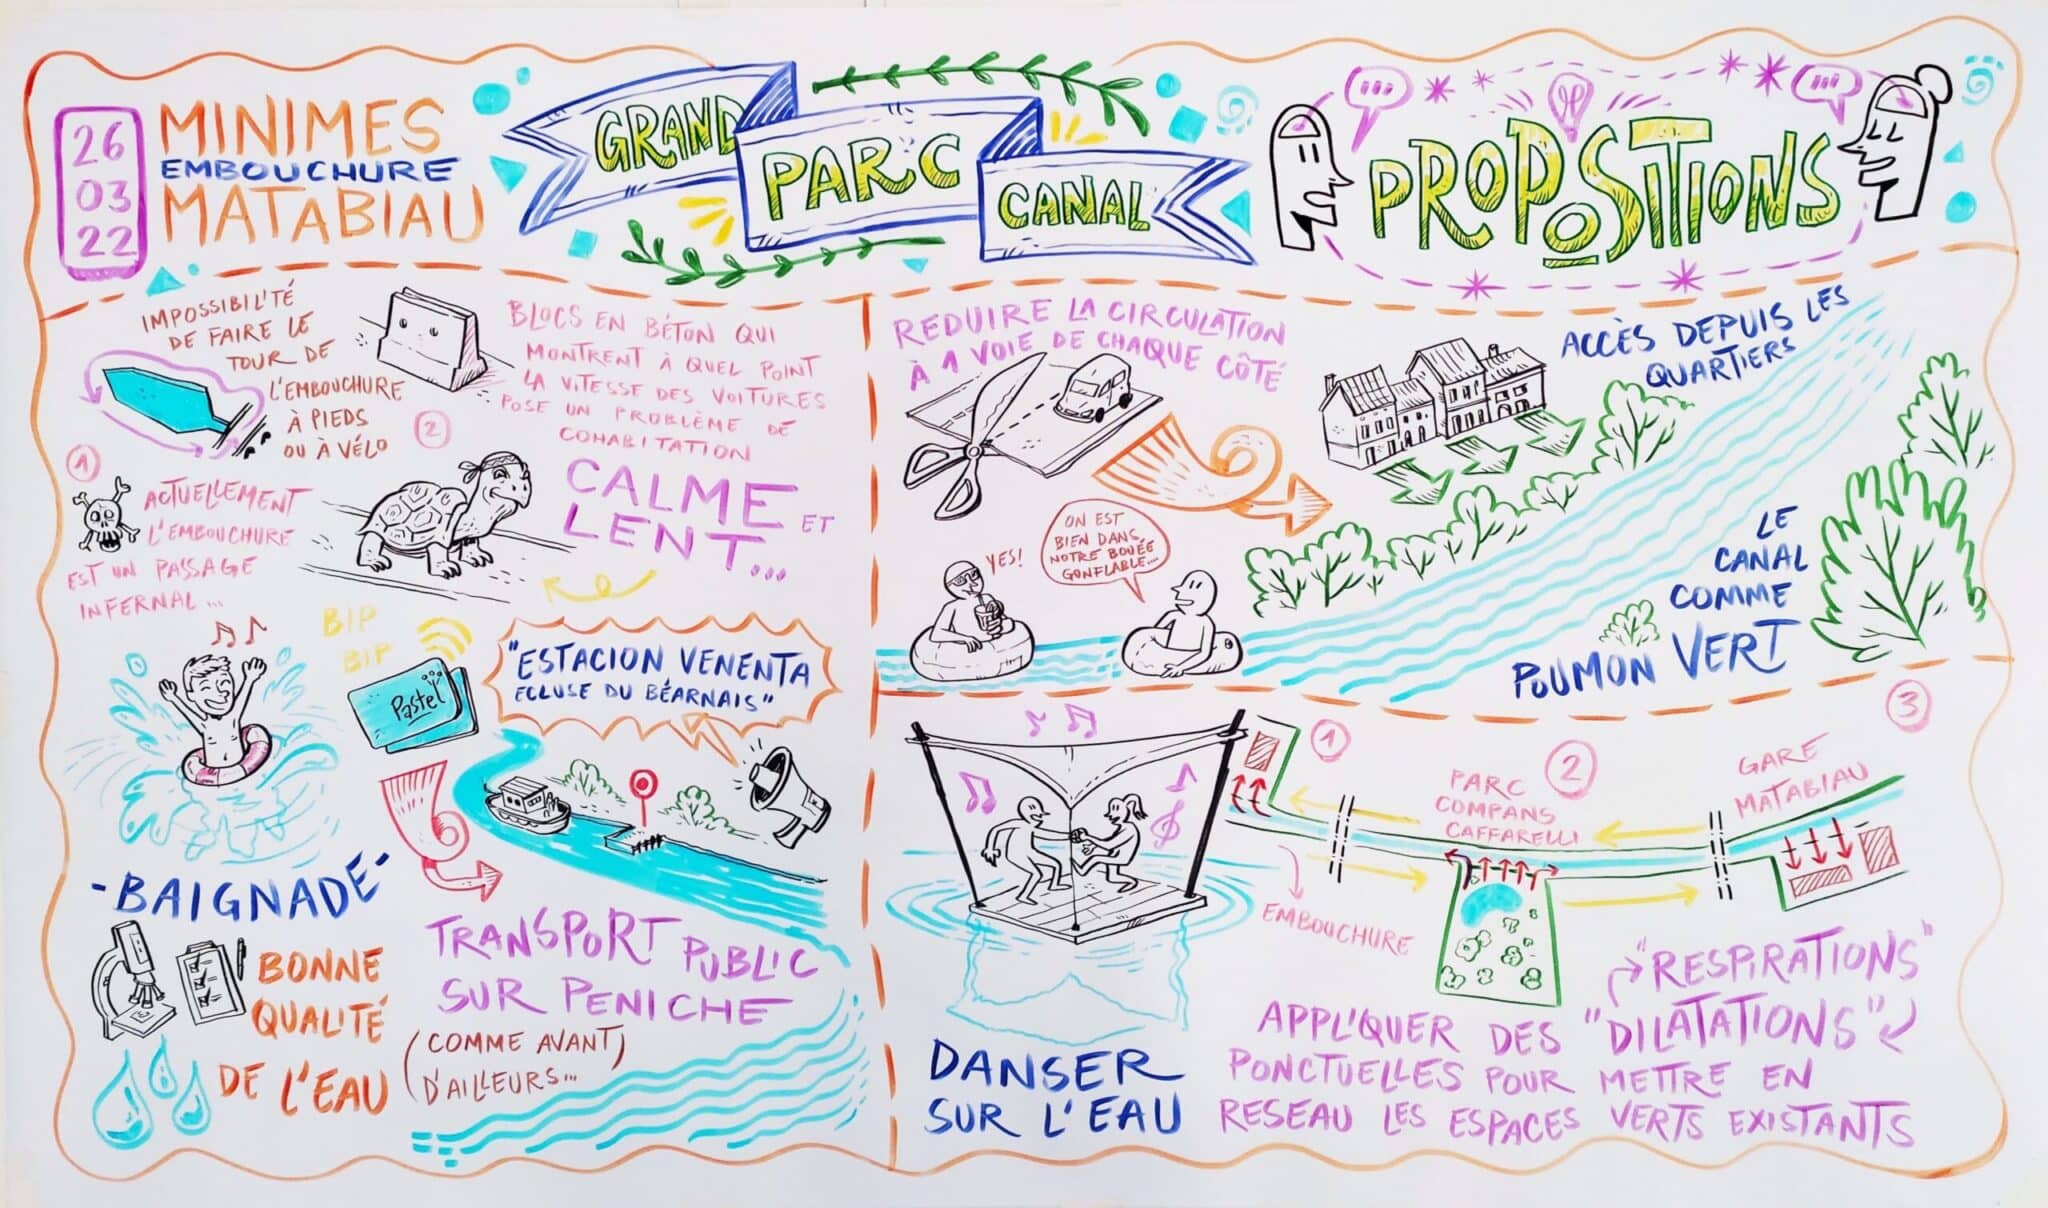 26
03
22
MINIMES
EMBOUCHURE
MATABIAU
GRAND
PARC
CANAL
PROPOSITIONS
IMPOSSIBILITÉ
DE FAIRE LE
TOUR DE
L'EMBOUCHURE
À PIEDS
OU À VÉLO
BLOCS EN BÉTON QUI
MONTRENT À QUEL POINT
LA VITESSE DES VOITURES
POSE UN PROBLÈME DE
COHABITATION
2
1
ACTUELLEMENT
L'EMBOUCHURE
EST UN PASSAGE
INFERNAL...
CALME ET
LENT...
BIP
BIP
Pastel
"ESTACION VENENTA
ECLUSE DU BÉARNAIS"
-BAIGNADE-
BONNE
QUALITÉ
DE L'EAU
TRANSPORT PUBLIC
SUR PENICHE
(COMME AVANT
D'AILLEURS...)
REDUIRE LA CIRCULATION
À 1 VOIE DE CHAQUE CÔTÉ
ACCÈS DEPUIS LES
QUARTIERS
YES!
ON EST
BIEN DANS
NOTRE BOUÉE
GONFLABLE...
LE
CANAL
COMME
POUMON VERT
DANSER
SUR L'EAU
1
EMBOUCHURE
2
PARC
COMPANS
CAFFARELLI
3
GARE
MATABIAU
"RESPIRATIONS"
APPLIQUER DES "DILATATIONS"
PONCTUELLES POUR METTRE EN
RESEAU LES ESPACES VERTS EXISTANTS